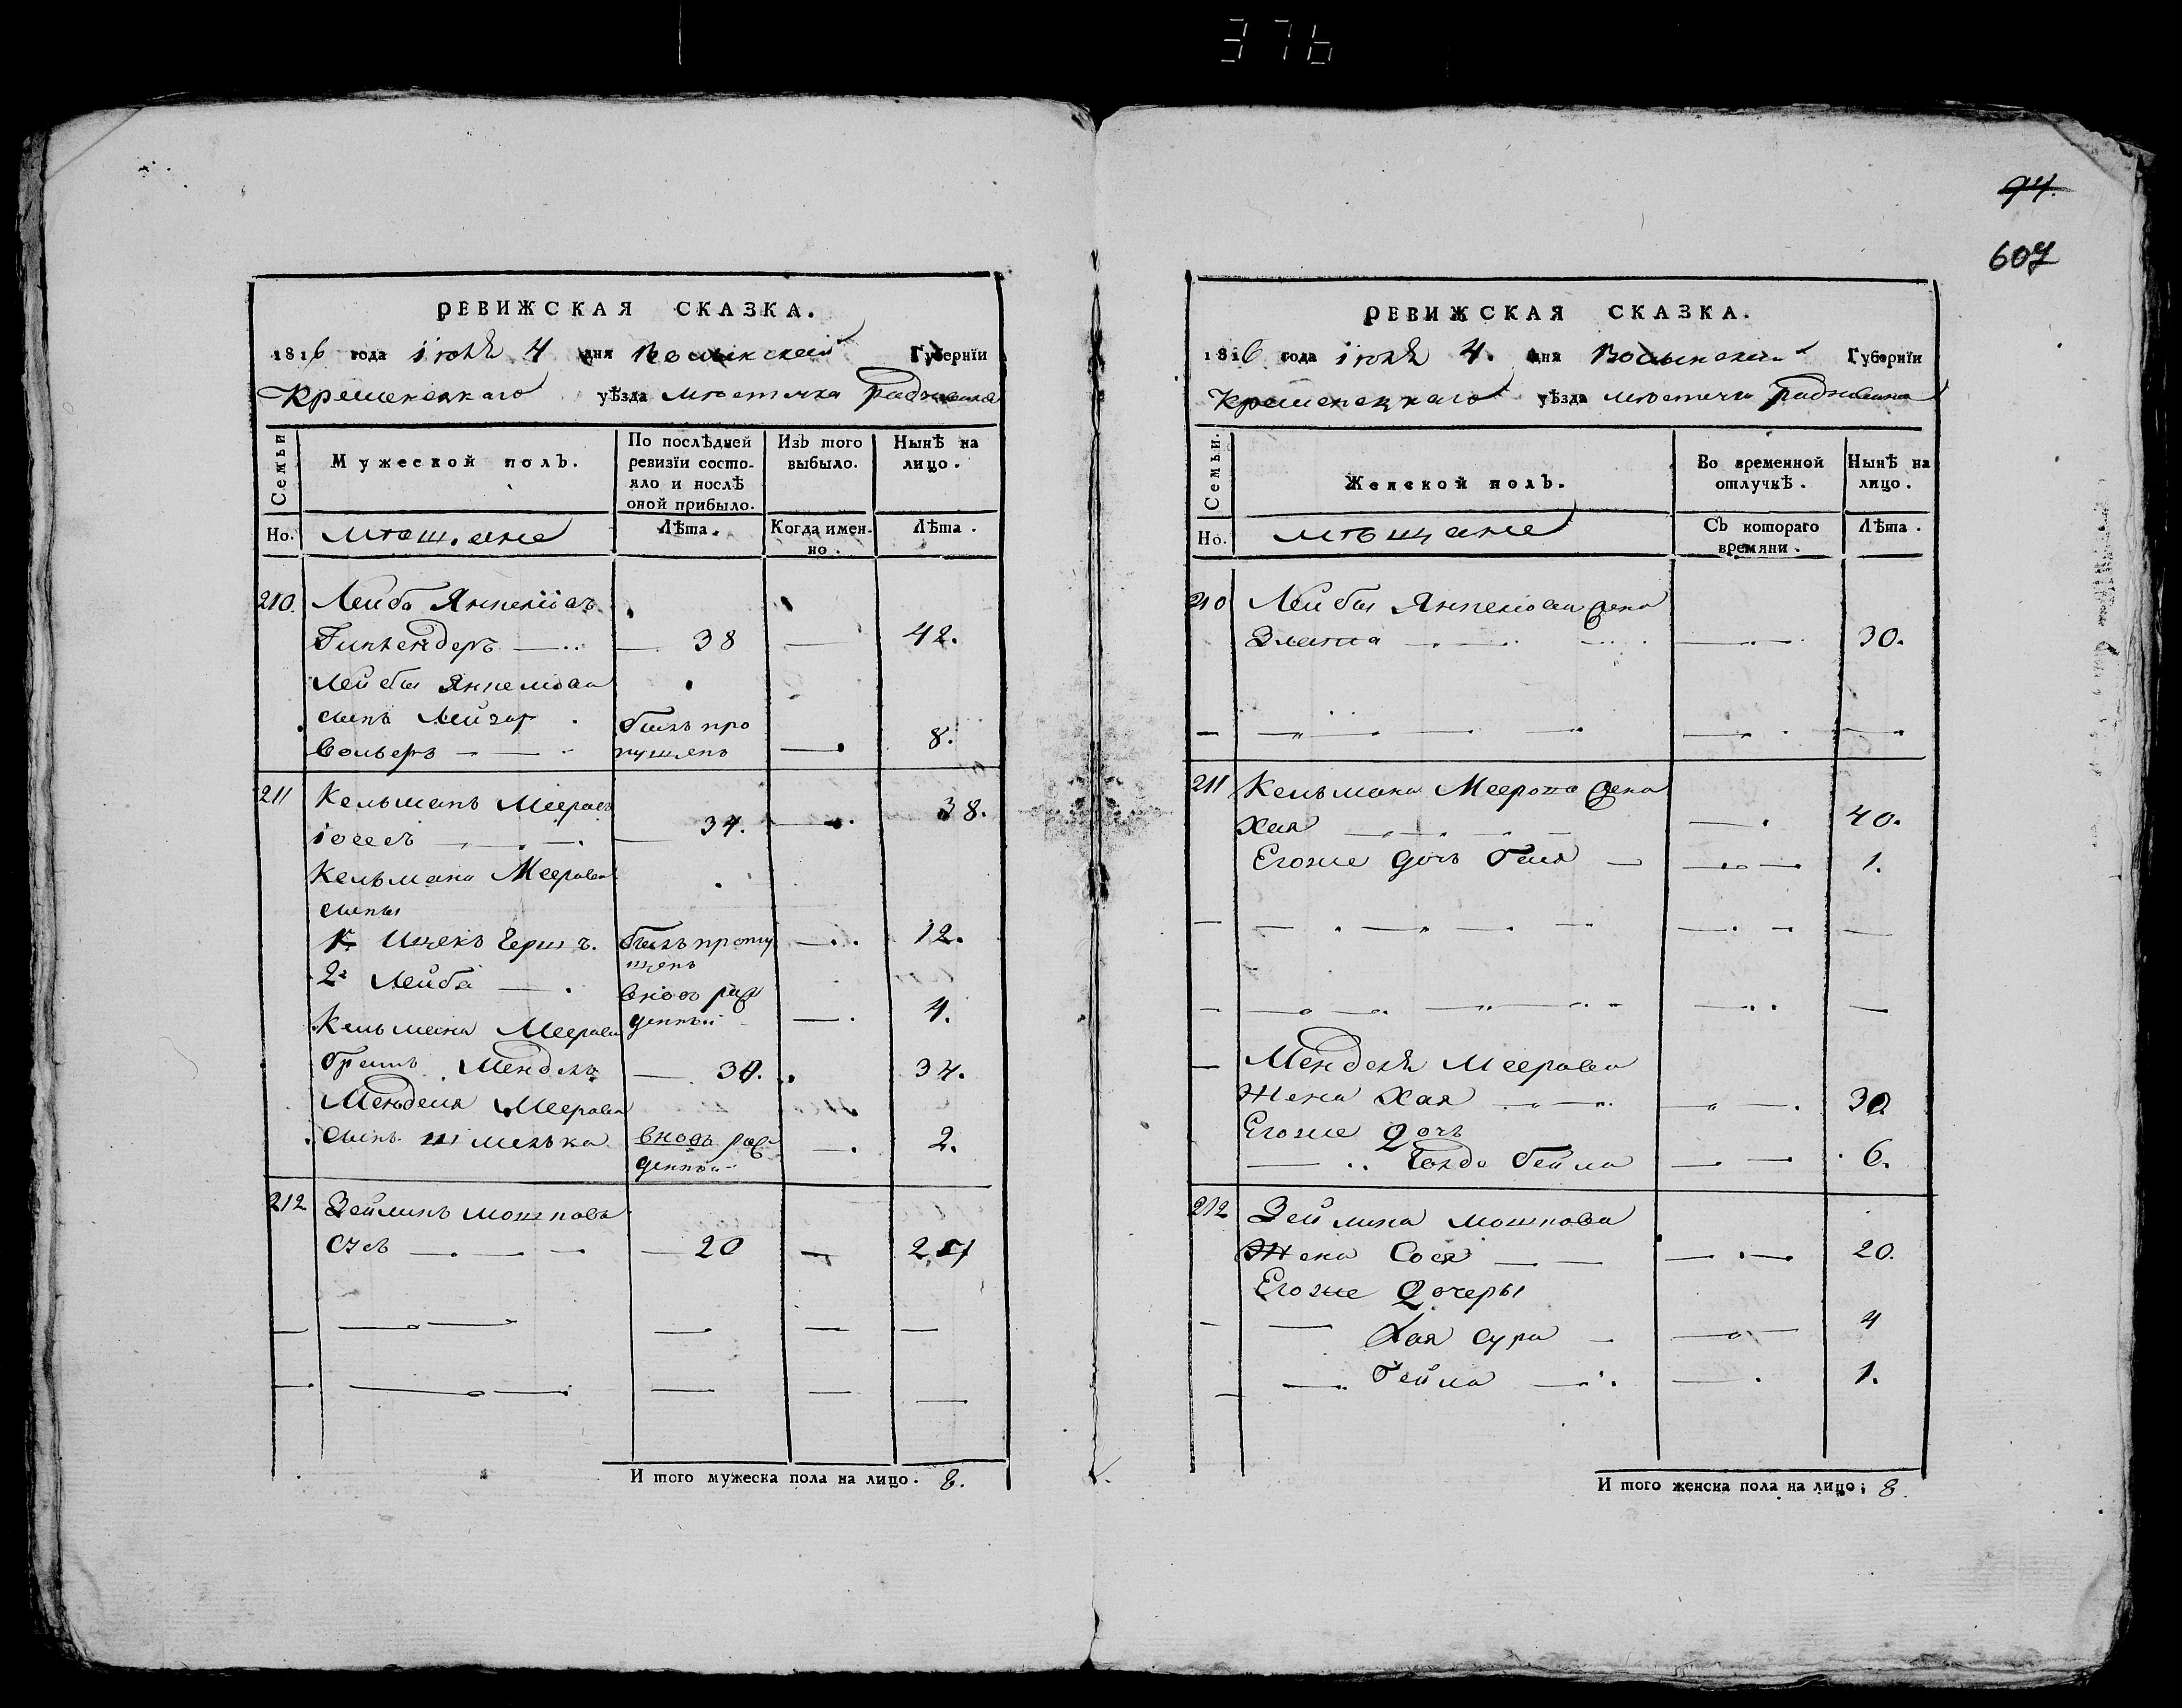 376
94.
607
РЕВИЖСКАЯ СКАЗКА.
1816 года іюля 4 дня Волынской Губернїи
Кременецкаго уѣзда мѣстечка Радзивила
Семьи
Мужеской полъ.
По послѣдней ревизїи состо-
яло и послѣ
оной прибыло.
Изъ того выбыло.
Нынѣ на лицо.
Но.
мѣщане
Лѣта.
Когда имен-
но.
Лѣта.
210. Лейба Янкелiовъ
38 — 42.
Лейбы Янкелiова
сынъ Лейзор
Вольеръ — — былъ про
пущенъ — 8.
211 Кельманъ Мееровъ
34. — 38.
Кельмана Меерова
сыны
1. Ицекъ Гершъ. былъ пропу
щенъ — 12.
2. Лейба — вновь рож
денный — 4.
Кельмана Меерова
братъ Мендель — 30. 34.
Менделя Меерова
сынъ Шмелька вновь рож
денный — 2.
212 Зейлинъ Мошковъ
— 20 — 24
— — — — —
— — — — —
И того мужеска пола на лицо. 8.
РЕВИЖСКАЯ СКАЗКА.
1816 года іюля 4. дня Волынской Губернїи
Кременецкаго уѣзда мѣстечка Радзивила
Семьи.
Женской полъ.
Во временной отлучкѣ.
Нынѣ на лицо.
Но.
мѣщане
Съ котораго
времяни.
Лѣта.
210 Лейбы Янкелiова жена
Злата — — — 30.
— — — —
211 Кельмана Меерова жена
Хая — — — 40.
Егоже дочь Бейля — — 1.
— — — —
— — — —
— Менделя Меерова
жена Хая — — 30
Егоже дочь
— Голда Бейла — 6.
212 Зейлина Мошкова
жена Сося — — 20.
Егоже дочеры
— — Хая Сура — — 4
— — Бейла — — 1.
И того женска пола на лицо; 8.